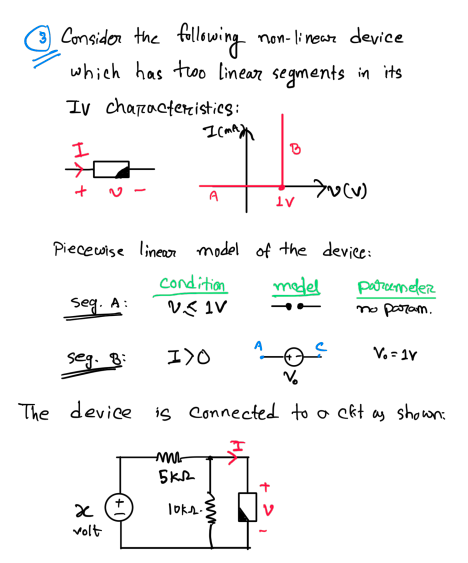 ③ Consider the following non-linear device
which has two linear segments in its
IV characteristics:
I(mA)
I
B
+ v -
A
1V
v(V)
Piecewise linear model of the device:
condition model parameter
seg. A: v ≤ 1V no param.
seg. B: I>0 A + - C V₀ = 1V
V₀
The device is connected to a ckt as shown:
I
5kΩ
+
x
volt
+
-
10kΩ
v
-